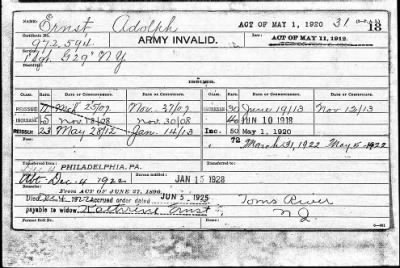 Ernst Adolph ACT OF MAY 1, 1920 31
NAME:
Certificate No. 972,594 ARMY INVALID. ACT OF MAY 11, 1912. 13
Service: G 29" N.Y.
ENROLLED
CLASS. RATE. DATE OF COMMENCEMENT. DATE OF CERTIFICATE. CLASS. RATE. DATE OF COMMENCEMENT. DATE OF CERTIFICATE.
REISSUE 25/07 Nov. 27/07 INCREASE 30 June 19/13 Nov 12/13
INCREASE 15 Nov 18/08 Nov 30/08 INCREASE 40 JUN 10 1918
REISSUE 23 May 28/12 Jan. 14/13 Inc. 50 May 1, 1920
72 March 31, 1922 May 5-1922
Transferred from PHILADELPHIA, PA.
Dec. 4 1922 JAN 15 1928
From ACT OF JUNE 27, 1890.
Died 1922 Accrued order dated JUN 5 1925 Toms River
payable to widow Ernst N.J.